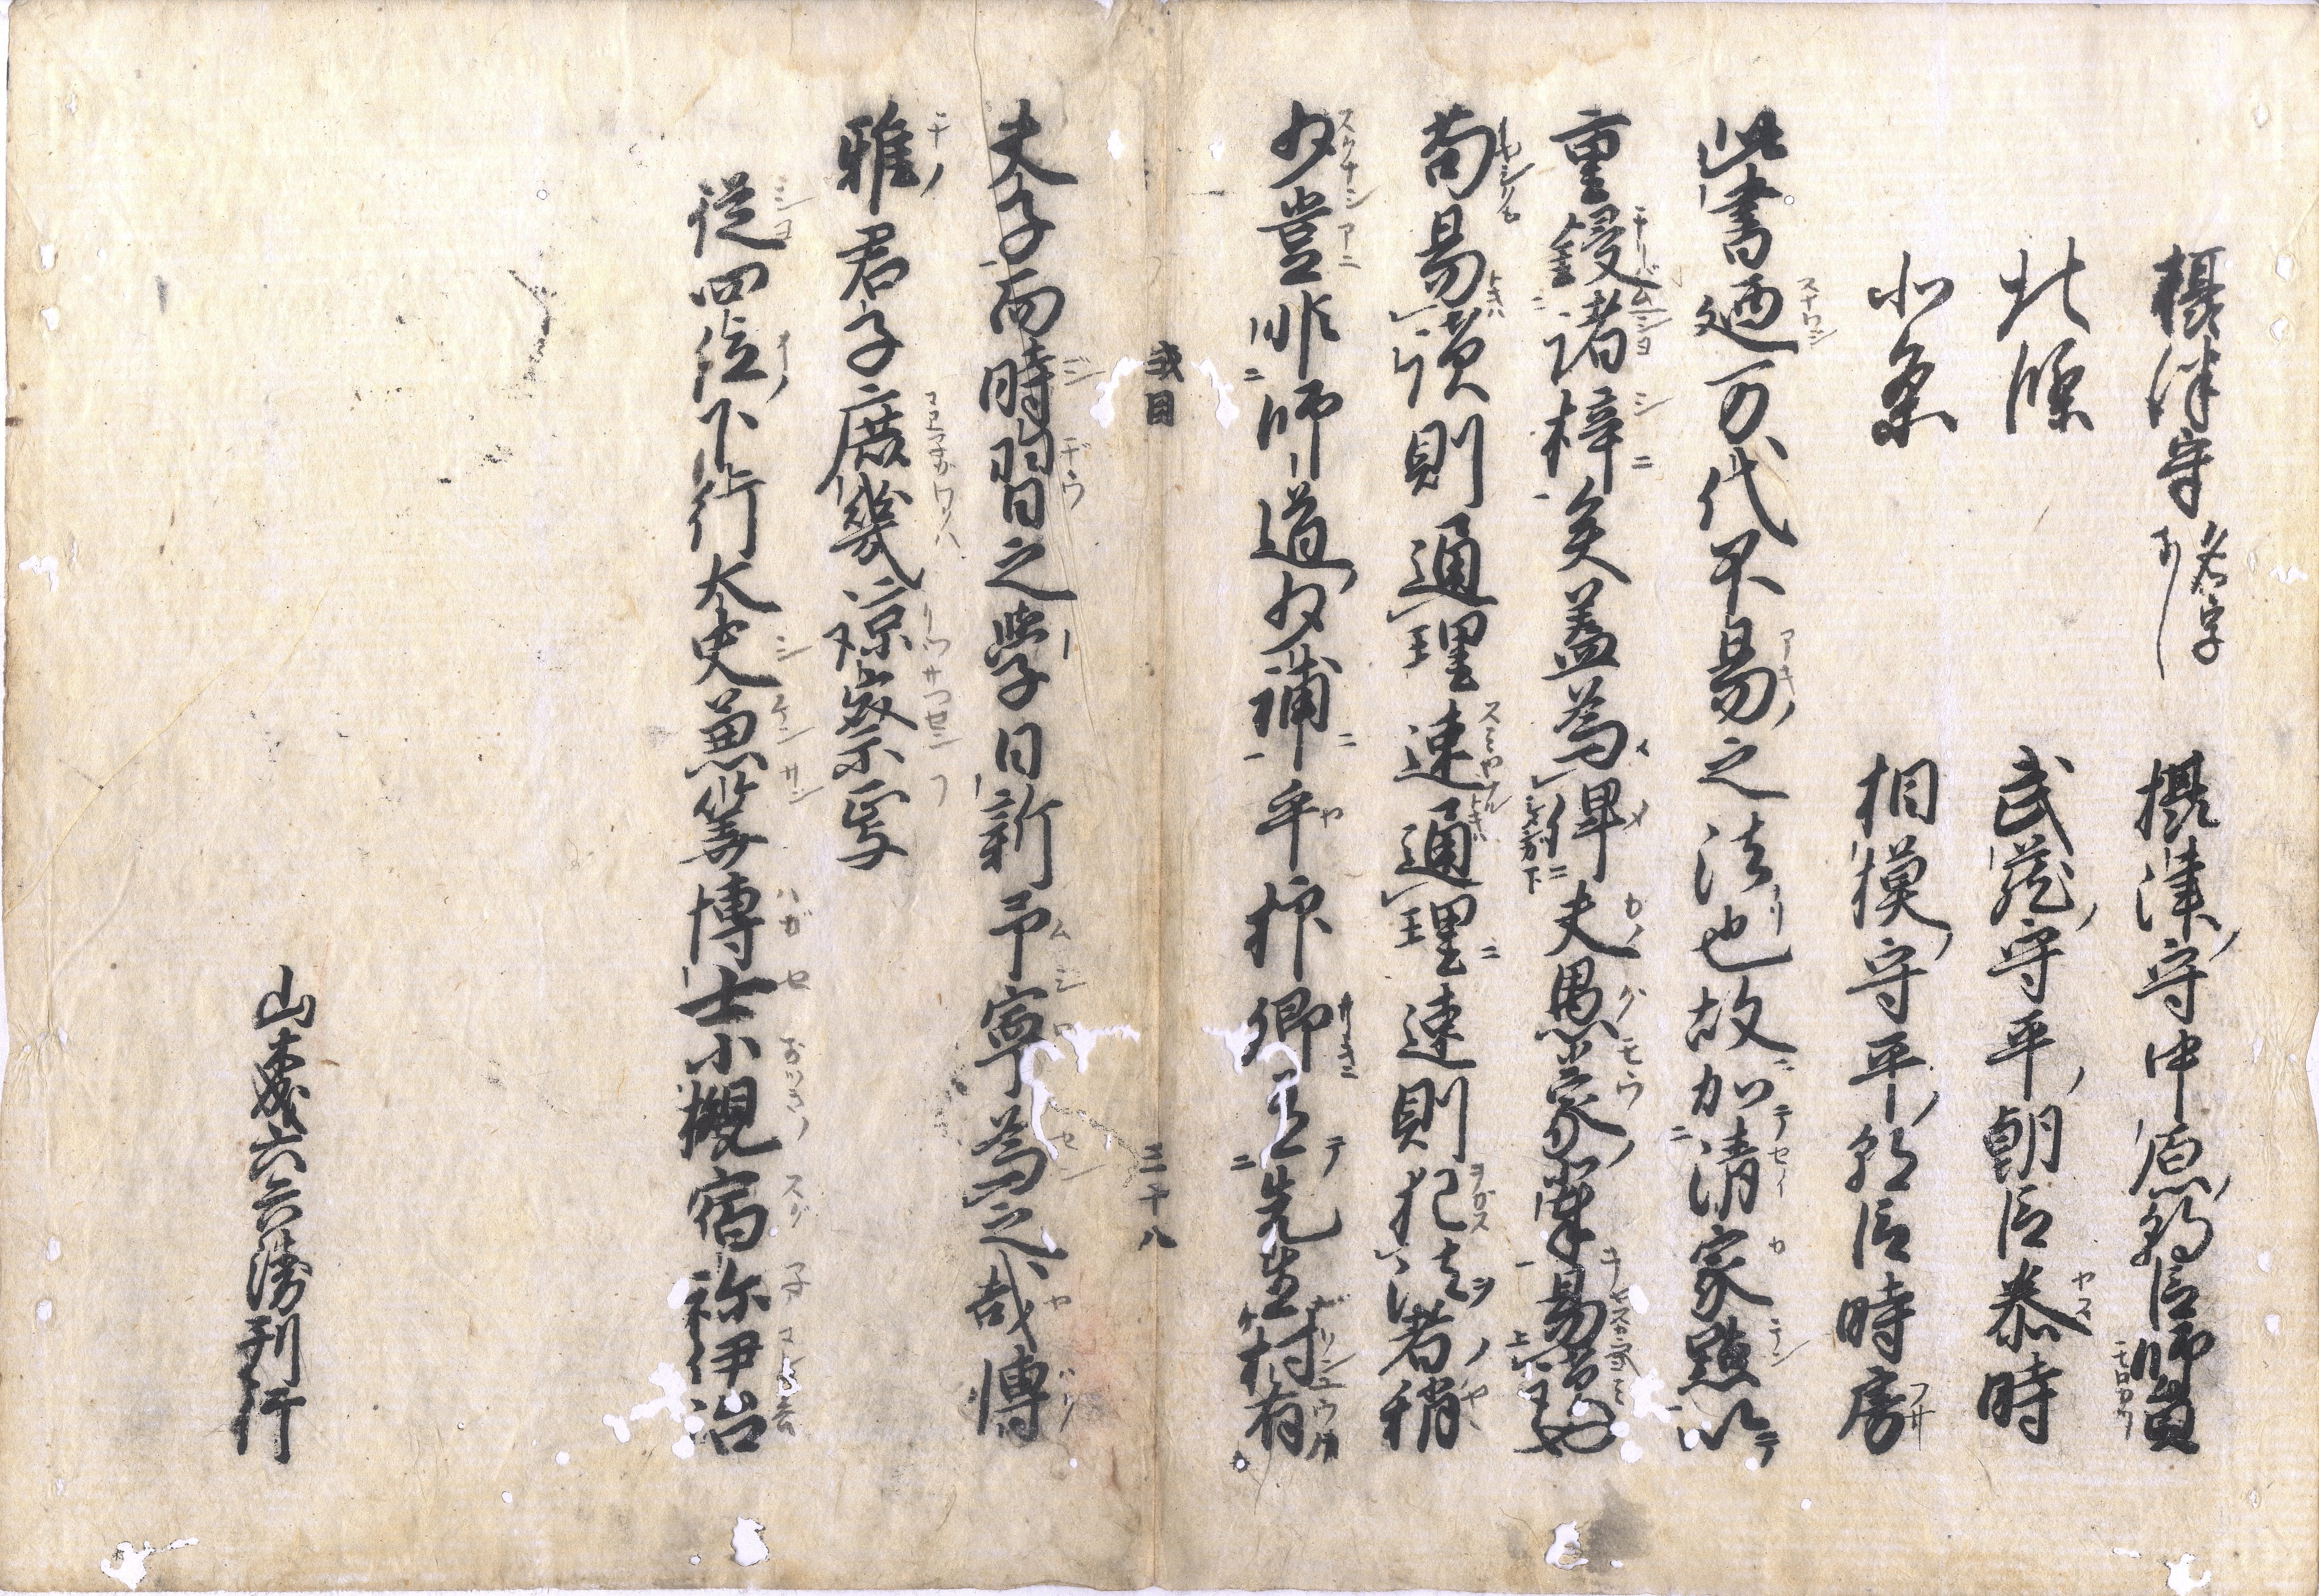 摂津守名字なし 摂津守中原朝臣師員
北條 武蔵守平朝臣泰時
北条 相模守平朝臣時房
此書廼万代不易之法也故加清家點以
重鋟諸梓矣蓋為俾夫愚蒙輩易読如
苟易讀則通理速通理速則犯法者稍
少豈非師道少補乎抑卿立先生村有
式目 三十八
夫子而時習之學日新予寧為之哉博
雅君子庶幾諒察焉
従四位下行大史兼筭博士小槻宿祢伊治
山本成六六湊刊行